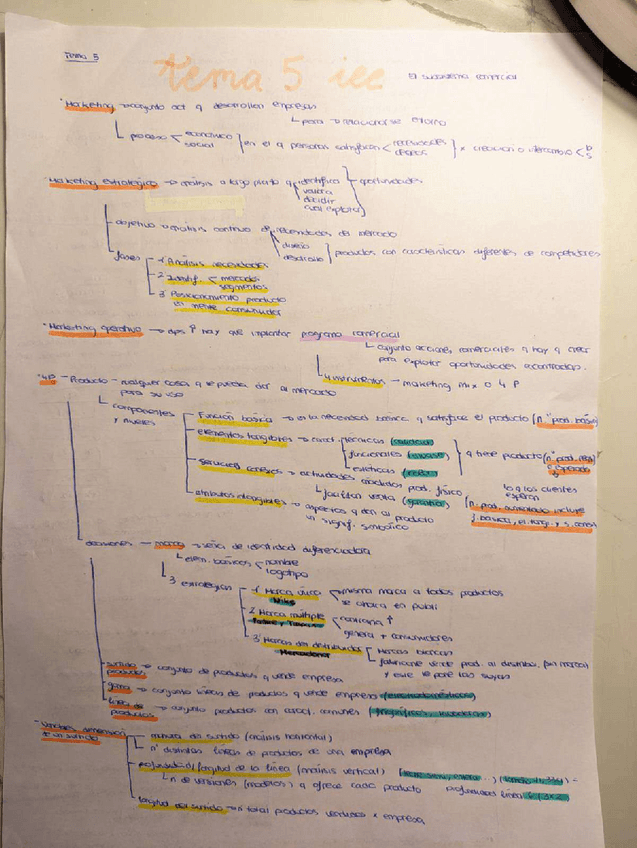 Tema 5
tema 5 iec
El subsistema comercial
· Marketing → conjunto act q desarrollan empresas
↳ para → relacionarse entorno
↳ proceso < económico social } en el q personas satisfacen < necesidades deseos } x creación o intercambio < b s
· Marketing estratégico → análisis a largo plazo q identifica } oportunidades
valora
decidir
cual explotar
objetivo → análisis continuo de necesidades de mercado
diseño
desarrollo } productos con características diferentes de competidores
fases
1 Análisis necesidades
2 Identif. < mercados
segmentos
3 Posicionamiento producto
en mente consumidor
· Marketing operativo → dps P hay que implantar programa comercial
↳ conjunto acciones comerciales q hay q crear
para explotar oportunidades encontradas.
↳ 4 instrumentos → marketing mix o 4 P
· 4P - Producto - cualquier cosa q se pueda dar al mercado
para su uso
↳ componentes
y niveles
Función básica → es la necesidad básica q satisface el producto (n "prod. básico")
elementos tangibles → caract. técnicas (calidad)
funcionales (envase)
estéticas (color)
q tiene producto (n "prod. real"
o esperado
lo q los clientes
esperan
servicios conexos → actividades añadidas prod. físico
↳ facilitan venta (garantía)
atributos intangibles → aspectos q dan al producto
un signif. simbólico
(n. prod. aumentado incluye
f. básicas, el. tang. y s. conex)
decisiones - marca → seña de identidad diferenciadora
↳ elem. básicos < nombre
logotipo
↳ 3 estrategias
1 Marca única < misma marca a todos productos
Nike
se ahorra en publi
2 Marca múltiple
genera + consumidores
3 Marcas del distribuidor < Marcas blancas
Mercadona
fabricante vende prod. al distribu. (sin marca)
y este le pone las suyas
surtido → conjunto de productos q vende empresa
productos
gama → conjunto líneas de productos q vende empresa (electrodomésticos)
línea de → conjunto productos con caract. comunes
productos
· Variables dimensión
d un surtido
amplitud del surtido (análisis horizontal)
↳ nº distintas líneas de productos de una empresa
profundidad/longitud de la línea (análisis vertical)
↳ n de versiones (modelos) q ofrece cada producto
profundidad línea 6 (3x2)
longitud del surtido → n total productos vendidos x empresa